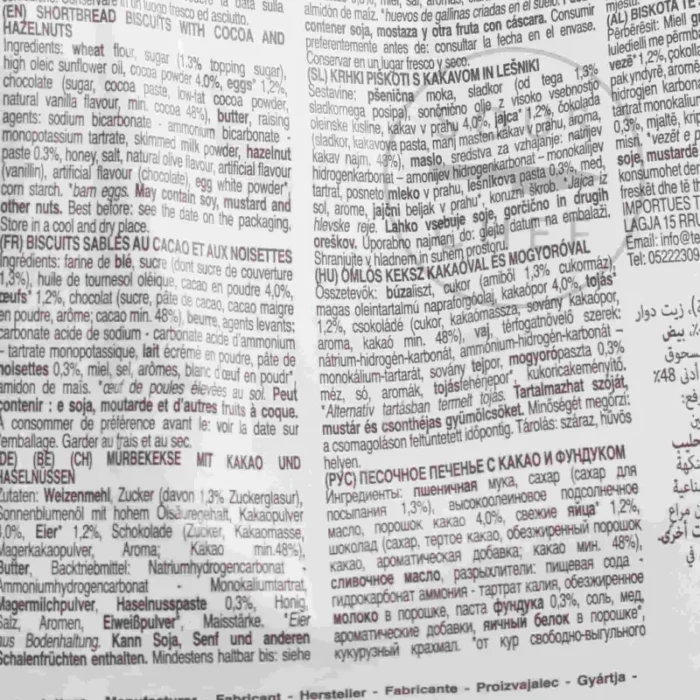 un luogo fresco ed asciutto.
(EN) SHORTBREAD BISCUITS WITH COCOA AND
HAZELNUTS
Ingredients: wheat flour, sugar (1.3% topping sugar),
high oleic sunflower oil, cocoa powder 4.0%, eggs* 1,2%,
chocolate (sugar, cocoa paste, low-fat cocoa powder,
natural vanilla flavour, min. cocoa 48%), butter, raising
agents: sodium bicarbonate - ammonium bicarbonate -
monopotassium tartrate, skimmed milk powder, hazelnut
paste 0.3%, honey, salt, natural olive flavour, artificial flavour
(vanillin), artificial flavour (chocolate), egg white powder*,
corn starch. *barn eggs. May contain soy, mustard and
other nuts. Best before: see the date on the packaging.
Store in a cool and dry place.
(FR) BISCUITS SABLÉS AU CACAO ET AUX NOISETTES
Ingrédients: farine de blé, sucre (dont sucre de couverture
1,3%), huile de tournesol oléique, cacao en poudre 4,0%,
œufs* 1,2%, chocolat (sucre, pâte de cacao, cacao maigre
en poudre, arôme; cacao min. 48%), beurre, agents levants:
carbonate acide de sodium - carbonate acide d'ammonium
- tartrate monopotassique, lait écrémé en poudre, pâte de
noisettes 0,3%, miel, sel, arômes, blanc d'œuf en poudre*
amidon de maïs. *œuf de poules élevées au sol. Peut
contenir : e soja, moutarde et d'autres fruits à coque.
A consommer de préférence avant le: voir la date sur
l'emballage. Garder au frais et au sec.
(DE) (BE) (CH) MÜRBEKEKSE MIT KAKAO UND
HASELNÜSSEN
Zutaten: Weizenmehl, Zucker (davon 1,3% Zuckerglasur),
Sonnenblumenöl mit hohem Ölsäuregehalt, Kakaopulver
4,0%, Eier* 1,2%, Schokolade (Zucker, Kakaomasse,
Magerkakaopulver, Aroma; Kakao min.48%),
Butter, Backtriebmittel: Natriumhydrogencarbonat -
Ammoniumhydrogencarbonat - Monokaliumtartrat,
Magermilchpulver, Haselnusspaste 0,3%, Honig,
Salz, Aromen, Eiweißpulver*, Maisstärke. *Eier
aus Bodenhaltung. Kann Soja, Senf und anderen
Schalenfrüchten enthalten. Mindestens haltbar bis: siehe
almidón de maíz. *huevos de gallinas criadas en el suelo.
contener soja, mostaza y otra fruta con cáscara. Consumir
preferentemente antes de: consultar la fecha en el envase.
Conservar en un lugar fresco y seco.
(SL) KRHKI PIŠKOTI S KAKAVOM IN LEŠNIKI
Sestavine: pšenična moka, sladkor (od tega 1,3%
sladkornega posipa), sončnično olje z visoko vsebnostjo
oleinske kisline, kakav v prahu 4,0%, jajca* 1,2%, čokolada
(sladkor, kakavova pasta, manj masten kakav v prahu, aroma,
kakav najm. 48%), maslo, sredstva za vzhajanje: natrijev
hidrogenkarbonat – amonijev hidrogenkarbonat – monokalijev
tartrat, posneto mleko v prahu, lešnikova pasta 0.3%, med,
sol, arome, jajčni beljak v prahu*, koruzni škrob. *Jajca iz
hlevske reje. Lahko vsebuje soje, gorčično in drugih
oreškov. Uporabno najmanj do: glejte datum na embalaži.
Shranjujte v hladnem in suhem prostoru.
(HU) OMLÓS KEKSZ KAKAÓVAL ÉS MOGYORÓVAL
Összetevők: búzaliszt, cukor (amiből 1,3% cukormáz),
magas oleintartalmú napraforgóolaj, kakaópor 4,0%, tojás*
1,2%, csokoládé (cukor, kakaómassza, sovány kakaópor,
aroma, kakaó min. 48%), vaj, térfogatnövelő szerek:
nátrium-hidrogén-karbonát, ammónium-hidrogén-karbonát –
monokálium-tartarát, sovány tejpor, mogyorópaszta 0,3%
méz, só, aromák, tojásfehérjepor*, kukoricakeményítő.
*Alternatív tartásban termelt tojás. Tartalmazhat szóját,
mustár és csonthéjas gyümölcsöket. Minőségét megőrzi:
a csomagoláson feltüntetett időpontig. Tárolás: száraz, hűvös
helyen.
(РУС) ПЕСОЧНОЕ ПЕЧЕНЬЕ С КАКАО И ФУНДУКОМ
Ингредиенты: пшеничная мука, сахар (сахар для
посыпания 1,3%), высокоолеиновое подсолнечное
масло, порошок какао 4,0%, свежие яйца* 1,2%,
шоколад (сахар, тертое какао, обезжиренный порошок
какао, ароматическая добавка; какао мин. 48%),
сливочное масло, разрыхлители: пищевая сода -
гидрокарбонат аммония - тартрат калия, обезжиренное
молоко в порошке, паста фундука 0,3%, соль, мед,
ароматические добавки, яичный белок в порошке*,
кукурузный крахмал. *от кур свободно-выгульного
(AL) BISKOTA
Përbërësit: Miell
vezë* 1,2%, çokol
soje, mustardë
freskët dhe të
IMPORTUES
LAGJA 15
Email: info@te
Tel: 05222309
زيت دوار
بيض
مسحوق
48٪
Manufacturer - Fabricant - Hersteller - Fabricante - Proizvajalec - Gyártja -